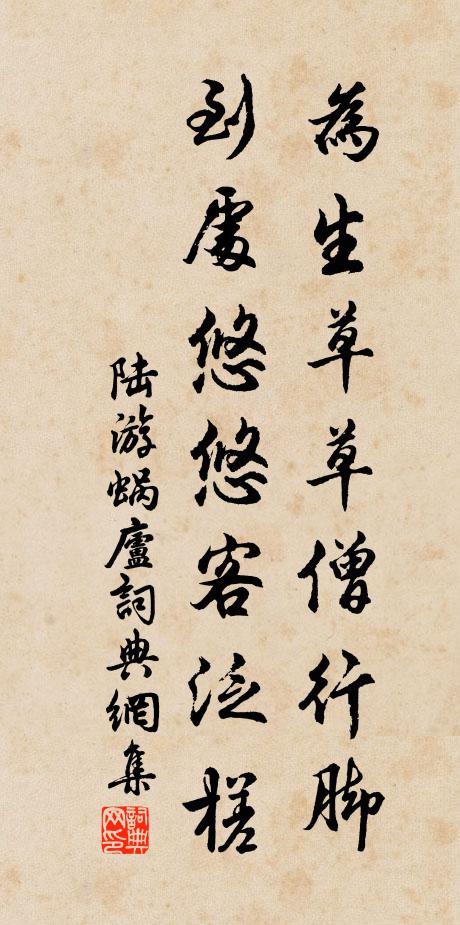 為生草草僧行脚
到處悠悠客泛槎
陆游蝸廬詞典網集
詞典网印